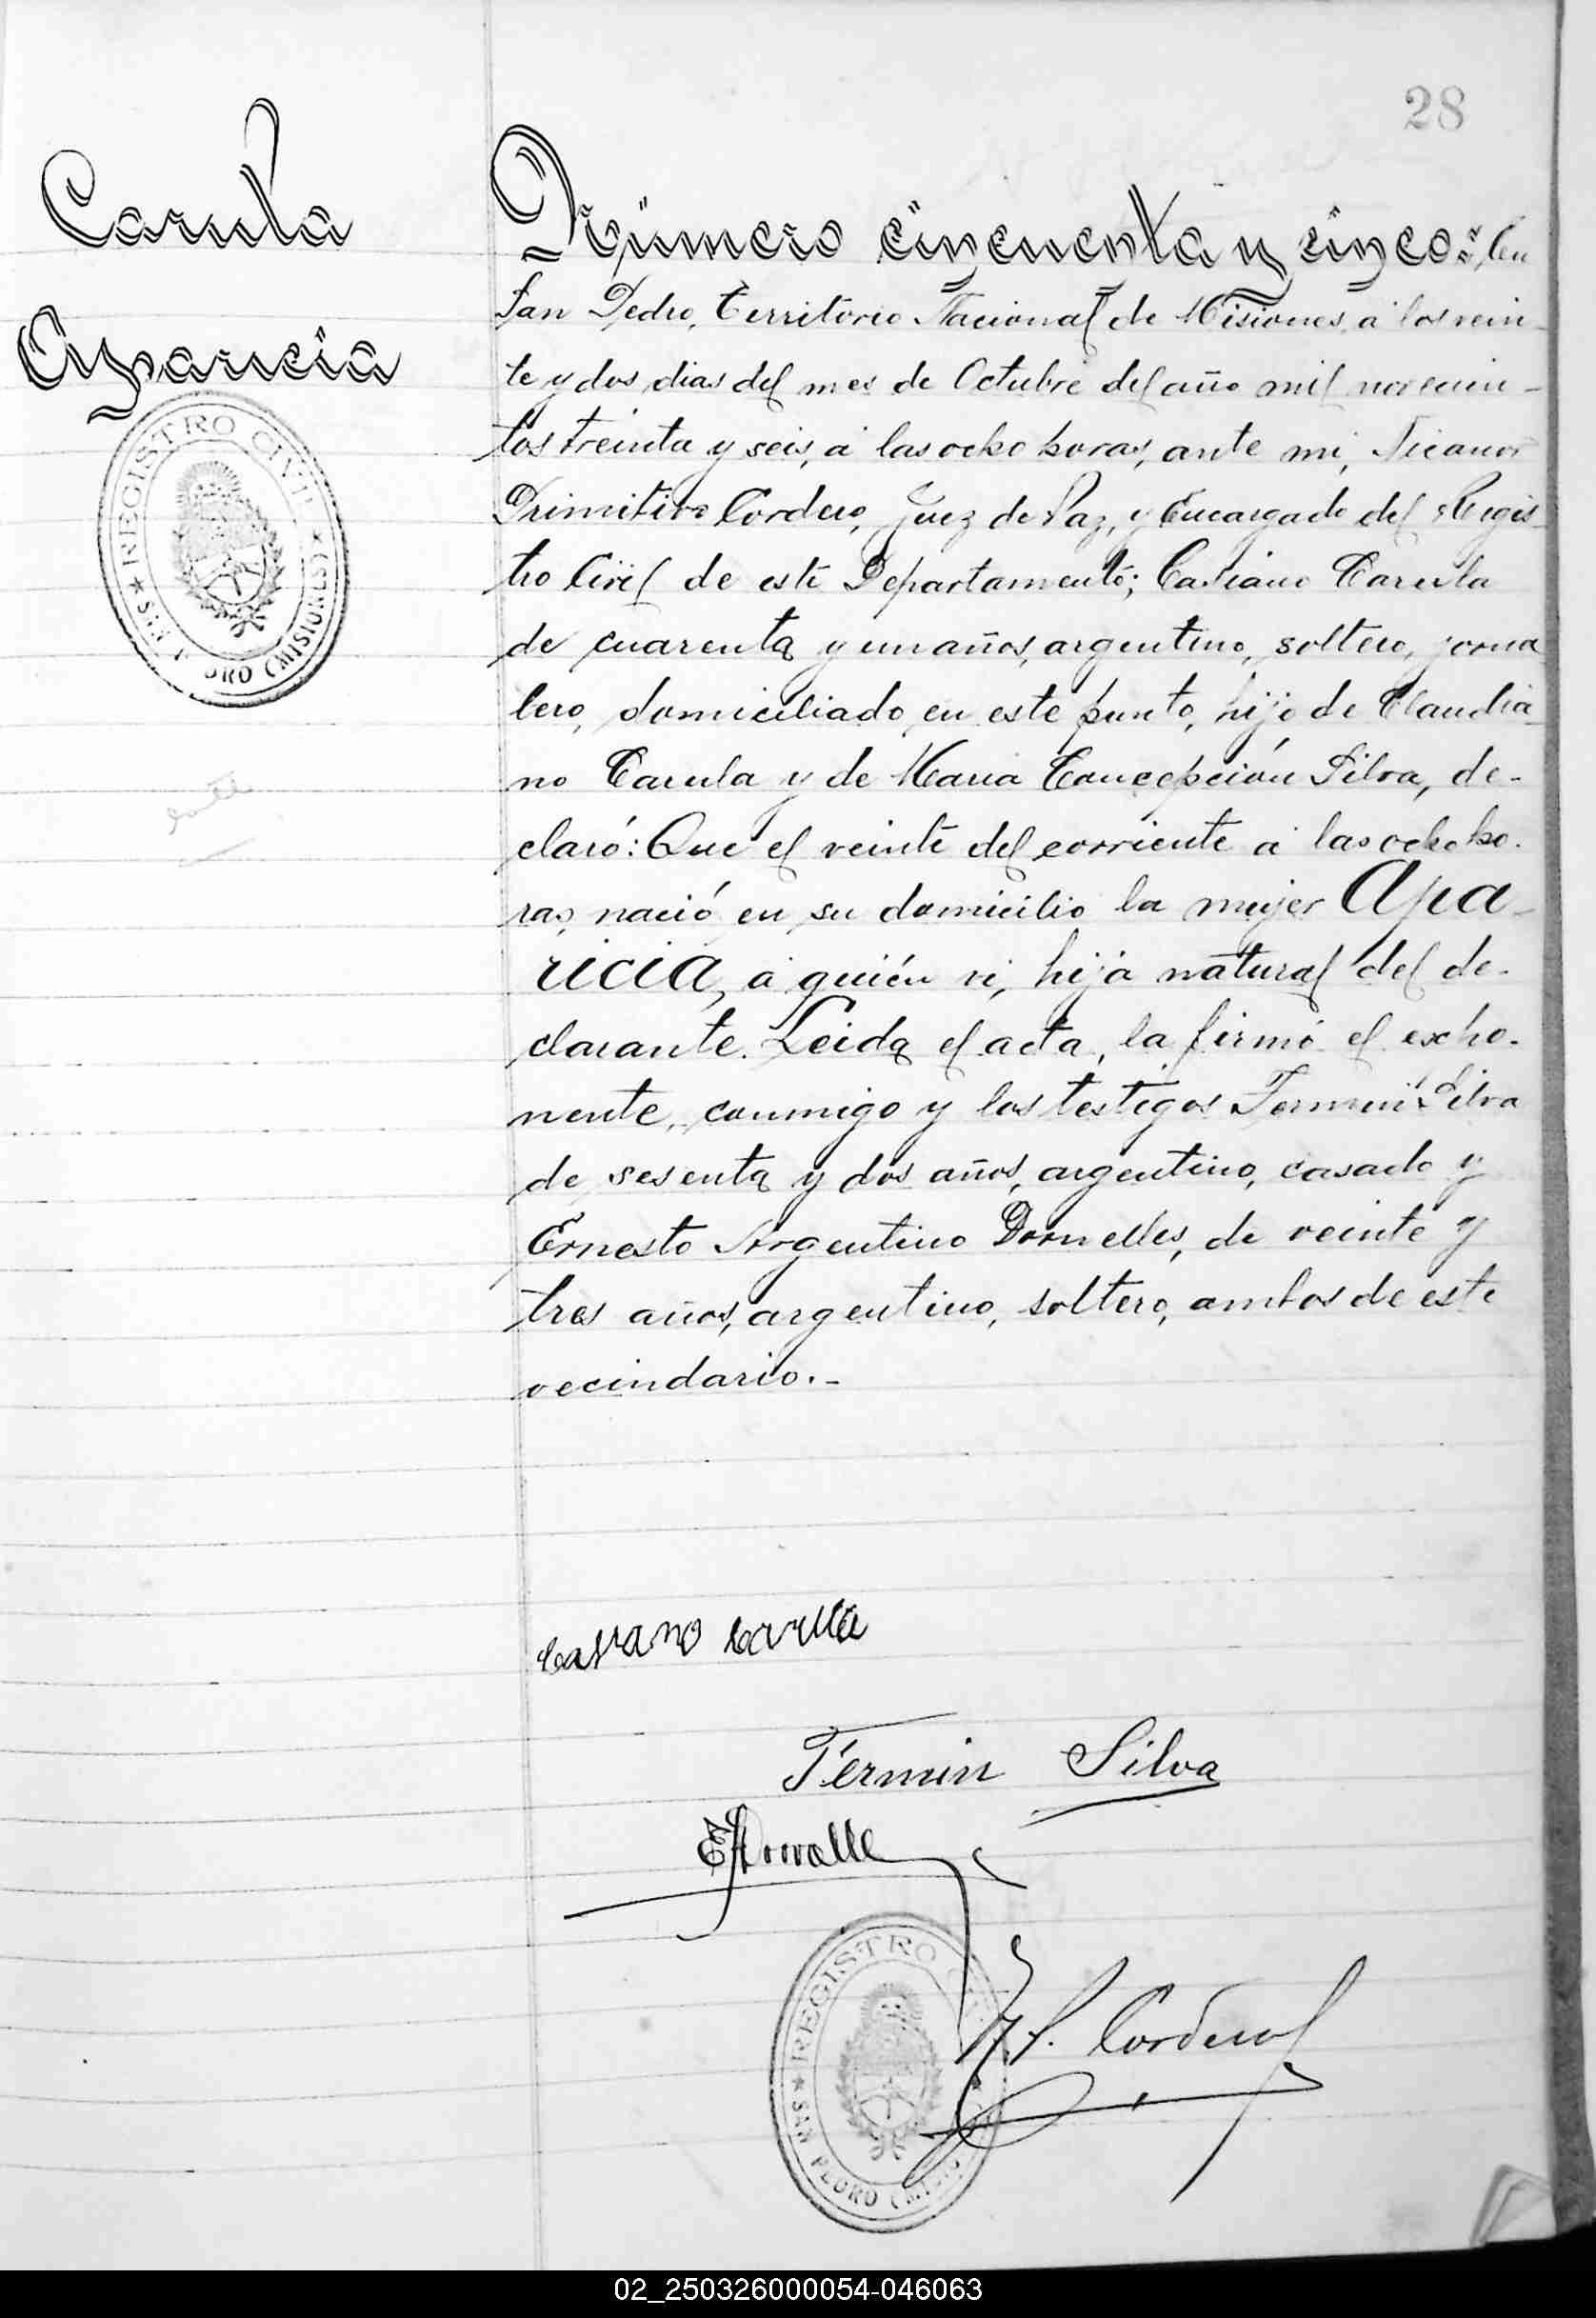 28
Carula
Aparicia
Número cincuenta y cinco: En
San Pedro, Territorio Nacional de Misiones, á los vein-
te y dos dias del mes de Octubre del año mil novecien-
tos treinta y seis, á las ocho horas, ante mi, Nicanor
Primitivo Cordero, Juez de Paz, y Encargado del Regis-
tro Civil de este Departamento; Casiano Carula
de cuarenta y un años, argentino, soltero, jorna
lero, domiciliado en este punto, hijo de Claudia-
no Carula y de Maria Concepción Silva, de-
claró: Que el veinte del corriente á las ocho ho-
ras, nació en su domicilio la mujer Apa-
ricia, á quién vi, hija natural del de-
clarante. Leida el acta, la firmó el expo-
nente, conmigo y los testigos Fermin Silva
de sesenta y dos años, argentino, casado y
Ernesto Argentino Dornelles, de veinte y
tres años, argentino, soltero, ambos de este
vecindario.-
REGISTRO CIVIL
SAN PEDRO (MISIONES)
Casiano Carula
Fermin Silva
N. P. Cordero
REGISTRO
SAN PEDRO
02_250326000054-046063